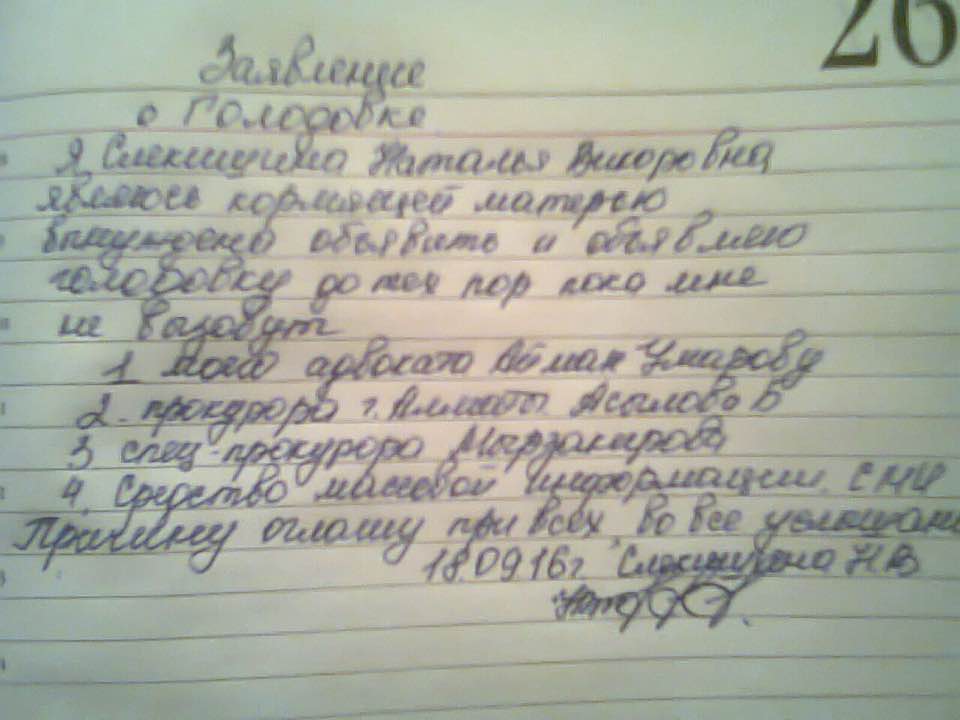 26
Заявление
о Голодовке
Я Слекишина Наталья Викоровна
являюсь кормящей матерью
вынуждена объявить и объявляю
голодовку до тех пор пока мне
не вызовут
1 моего адвоката Айман Умарову
2. прокурора г. Алматы Асылова Б
3 спец-прокурора Мырзакирова
4. Средство массовой информации СМИ
Причину оглашу при всех во все услышани
18.09.16г. Слекишина Н.В